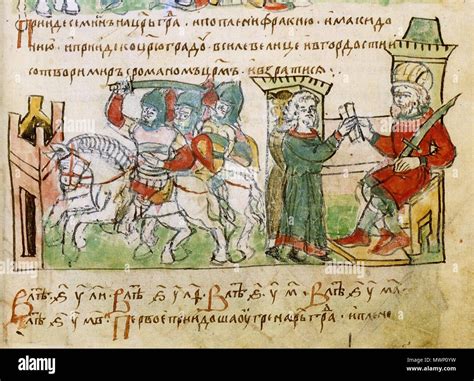 приде семиѡн на цр҃ьгра. и поплени фракию. и макидо
нию. и приде ко цр҃юградоу. в силе велице и в гордости
сотвори мир с романом цр҃мъ. и възвратисѧ
В лѣт ѕ у ли. В лѣт ѕ у В лѣт ѕ у м. В лѣт ѕ у ма
В лѣт ѕ у мв. Первое придоша оугре на цр҃ьгра. и плене
alamy
Image ID: MWP0YW
www.alamy.com